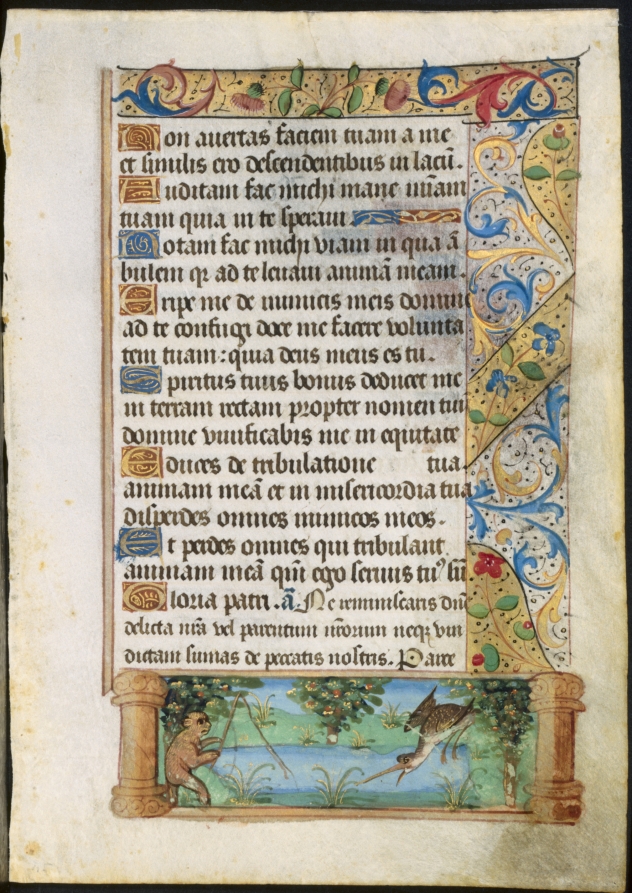 Non auertas faciem tuam a me
et similis ero descendentibus in lacū.
Auditam fac michi mane miām
tuam quia in te speraui
Notam fac michi viam in qua ā
bulem qꝛ ad te leuaui animā meam.
Eripe me de inimicis meis domine
ad te confugi doce me facere volunta
tem tuam: quia deus meus es tu.
Spiritus tuus bonus deducet me
in terram rectam propter nomen tuū
domine viuificabis me in equitate
Educes de tribulatione tua
animam meā et in misericordia tua
disperdes omnes inimicos meos.
Et perdes omnes qui tribulant
animam meā qm̄ ego seruus tuꝰ sū
Gloria patri. ā. Ne reminiscaris dn̄e
delicta nr̄a vel parentum nr̄orum neqꝫ vin
dictam sumas de peccatis nostris. Parce